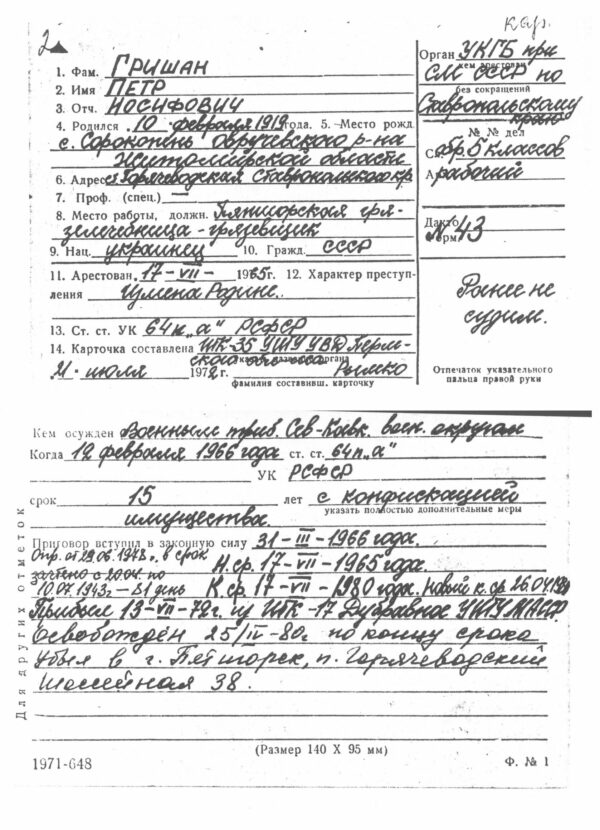 кар.
2
1. Фам. ГРИШАН
2. Имя ПЕТР
3. Отч. ИОСИФОВИЧ
4. Родился 10 февраля 1919 года. 5. Место рожд.
с. Сорокопень Овручевского р-на
Житомирской области
6. Адрес с. Горячеводская Ставропольского кр.
7. Проф. (спец.) —
8. Место работы, должн. Пятигорская гря-
зелечебница - грязевщик
9. Нац. украинец 10. Гражд. СССР
11. Арестован 17-VII-1965г. 12. Характер преступ-
ления Измена Родине.
13. Ст. ст. УК 64 п„а" РСФСР
14. Карточка составлена ИТК-35 УИТУ УВД Перм-
ского
21 июля 1972г.
фамилия составивш. карточку
Орган УКГБ при
кем арестован
СМ СССР по
без сокращений
Ставропольскому
краю
№ № дел
обр. 5 классов
А рабочий
Дакто
форм.
N 43
Ранее не
судим.
Отпечаток указательного
пальца правой руки
Кем осужден Военным триб. Сев-Кавк. воен. округом
Когда 12 февраля 1966 года ст. ст. 64 п„а"
УК РСФСР
срок 15 лет с конфискацией
указать полностью дополнительные меры
имущества.
Приговор вступил в законную силу 31-III-1966 года.
Опр. от 29.06.1978г. в срок Н.ср. 17-VII-1965 года.
зачтено с 20.04. по
10.07.1943г. — 81 день К.ср. 17-VII-1980 года. Новый к.ср. 26.04.1980
Прибыл 13-VII-72г. из ИТК-17 Дубравное УИТУ МАССР.
Освобождён 25/IV-80г. по концу срока
Убыл в г. Пятигорск, п. Горячеводский
Шоссейная 38.
Для других отметок
(Размер 140 X 95 мм)
1971-648
Ф. № 1